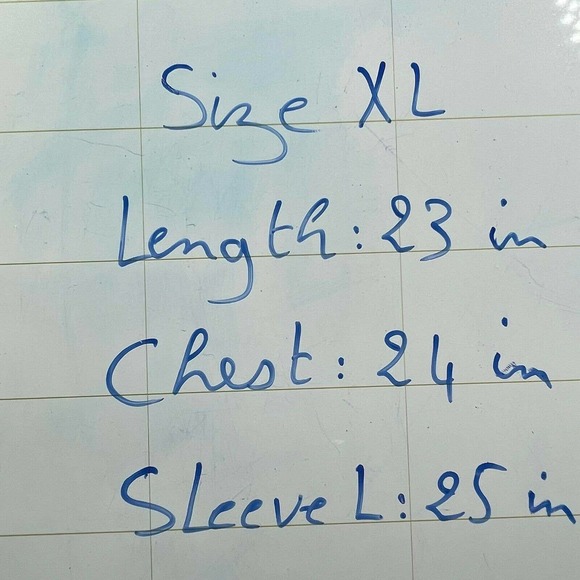 Size XL
Length: 23 in
Chest: 24 in
Sleeve L: 25 in